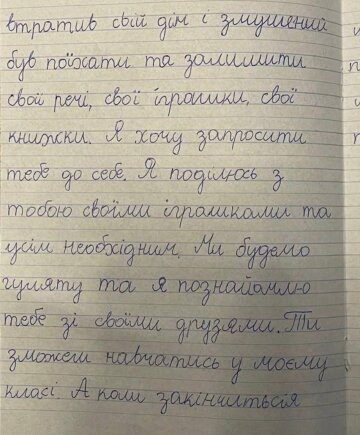 втратив свій дім і змушений
був поїхати та залишити
свої речі, свої іграшки, свої
книжки. Я хочу запросити
тебе до себе. Я поділюсь з
тобою своїми іграшками та
усім необхідним. Ми будемо
гуляту та я познайомлю
тебе зі своїми друзями. Ти
зможеш навчатись у моєму
класі. А коли закінчиться